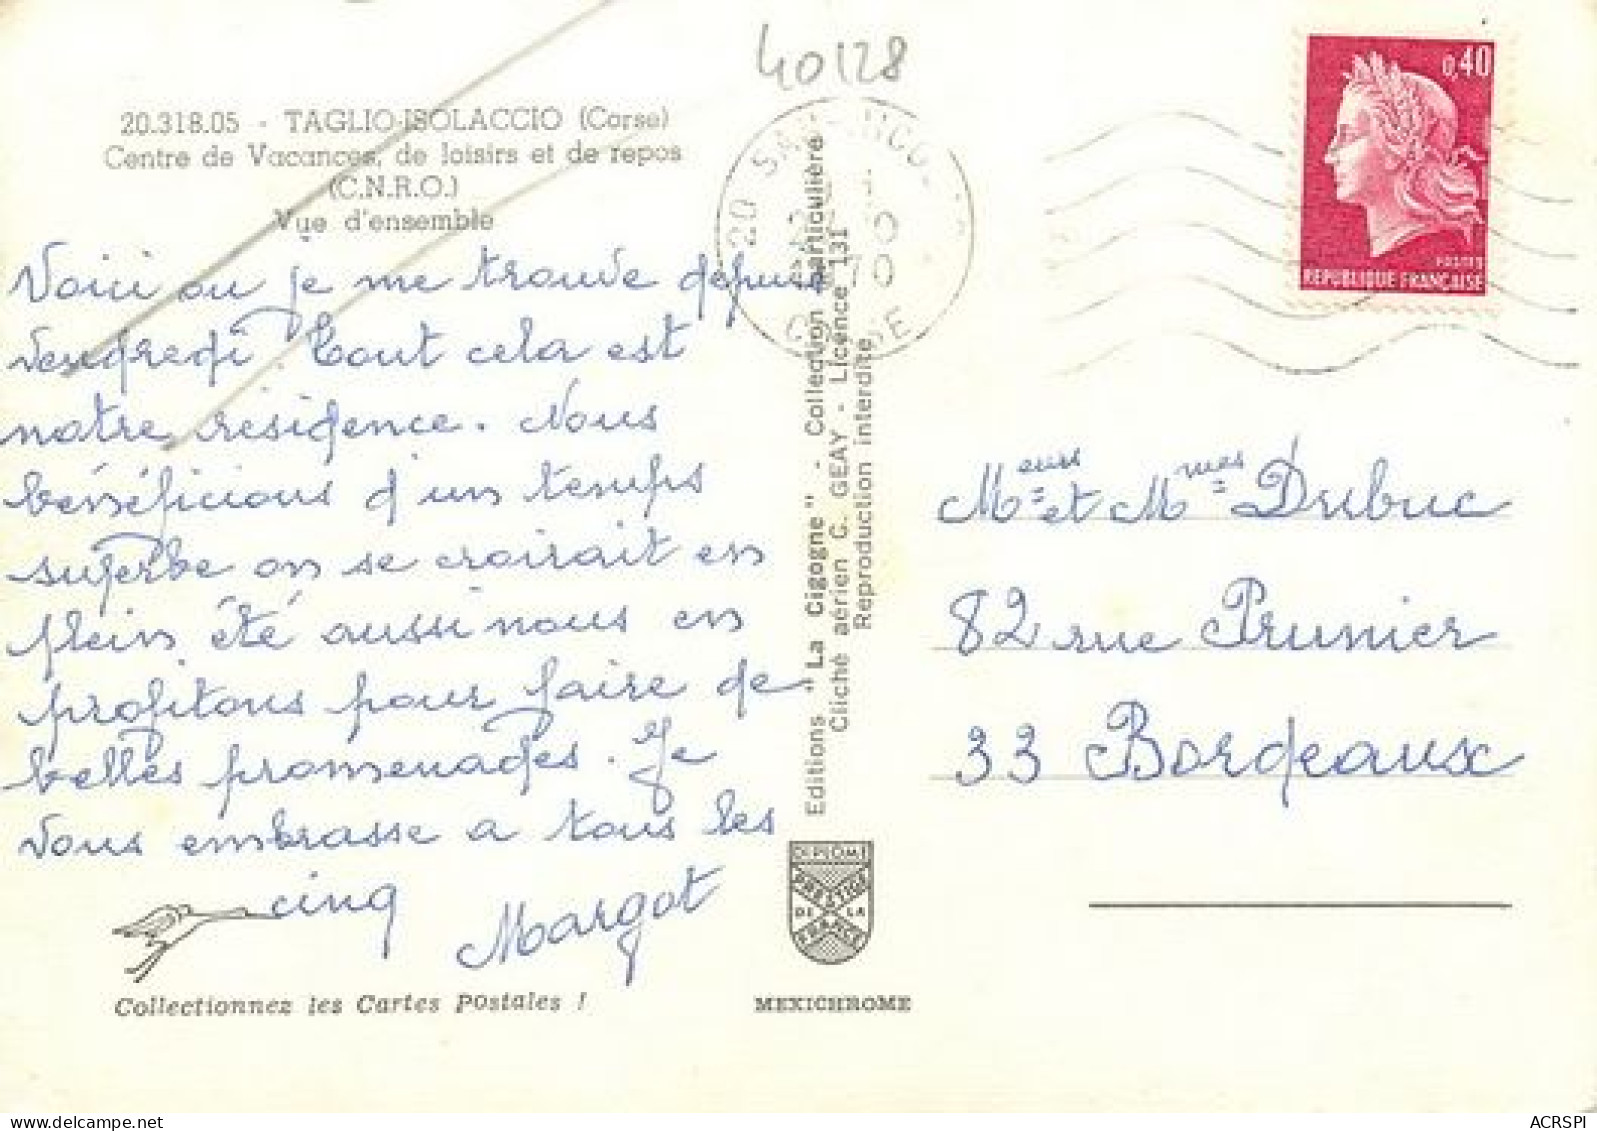 40128
20.318.05 - TAGLIO-ISOLACCIO (Corse)
Centre de Vacances, de loisirs et de repos
(C.N.R.O.)
Vue d'ensemble
Voici ou je me trouve depuis
vendredi Tout cela est
notre résidence. Nous
bénéficions d'un temps
superbe on se croirait en
plein été aussi nous en
profitons pour faire de
belles promenades. Je
vous embrasse a tous les
cinq
Margot
Collectionnez les Cartes Postales !
Editions "La Cigogne" - Collection particulière
Cliché aérien G. GEAY - Licence 131
Reproduction interdite
DIPLOME
PRESTIGE
DE LA
FRANCE
MEXICHROME
20
70
CORSE
0,40
POSTES
REPUBLIQUE FRANÇAISE
Meurs et Mmes Dubuc
82 rue Prunier
33 Bordeaux
ACRSPI